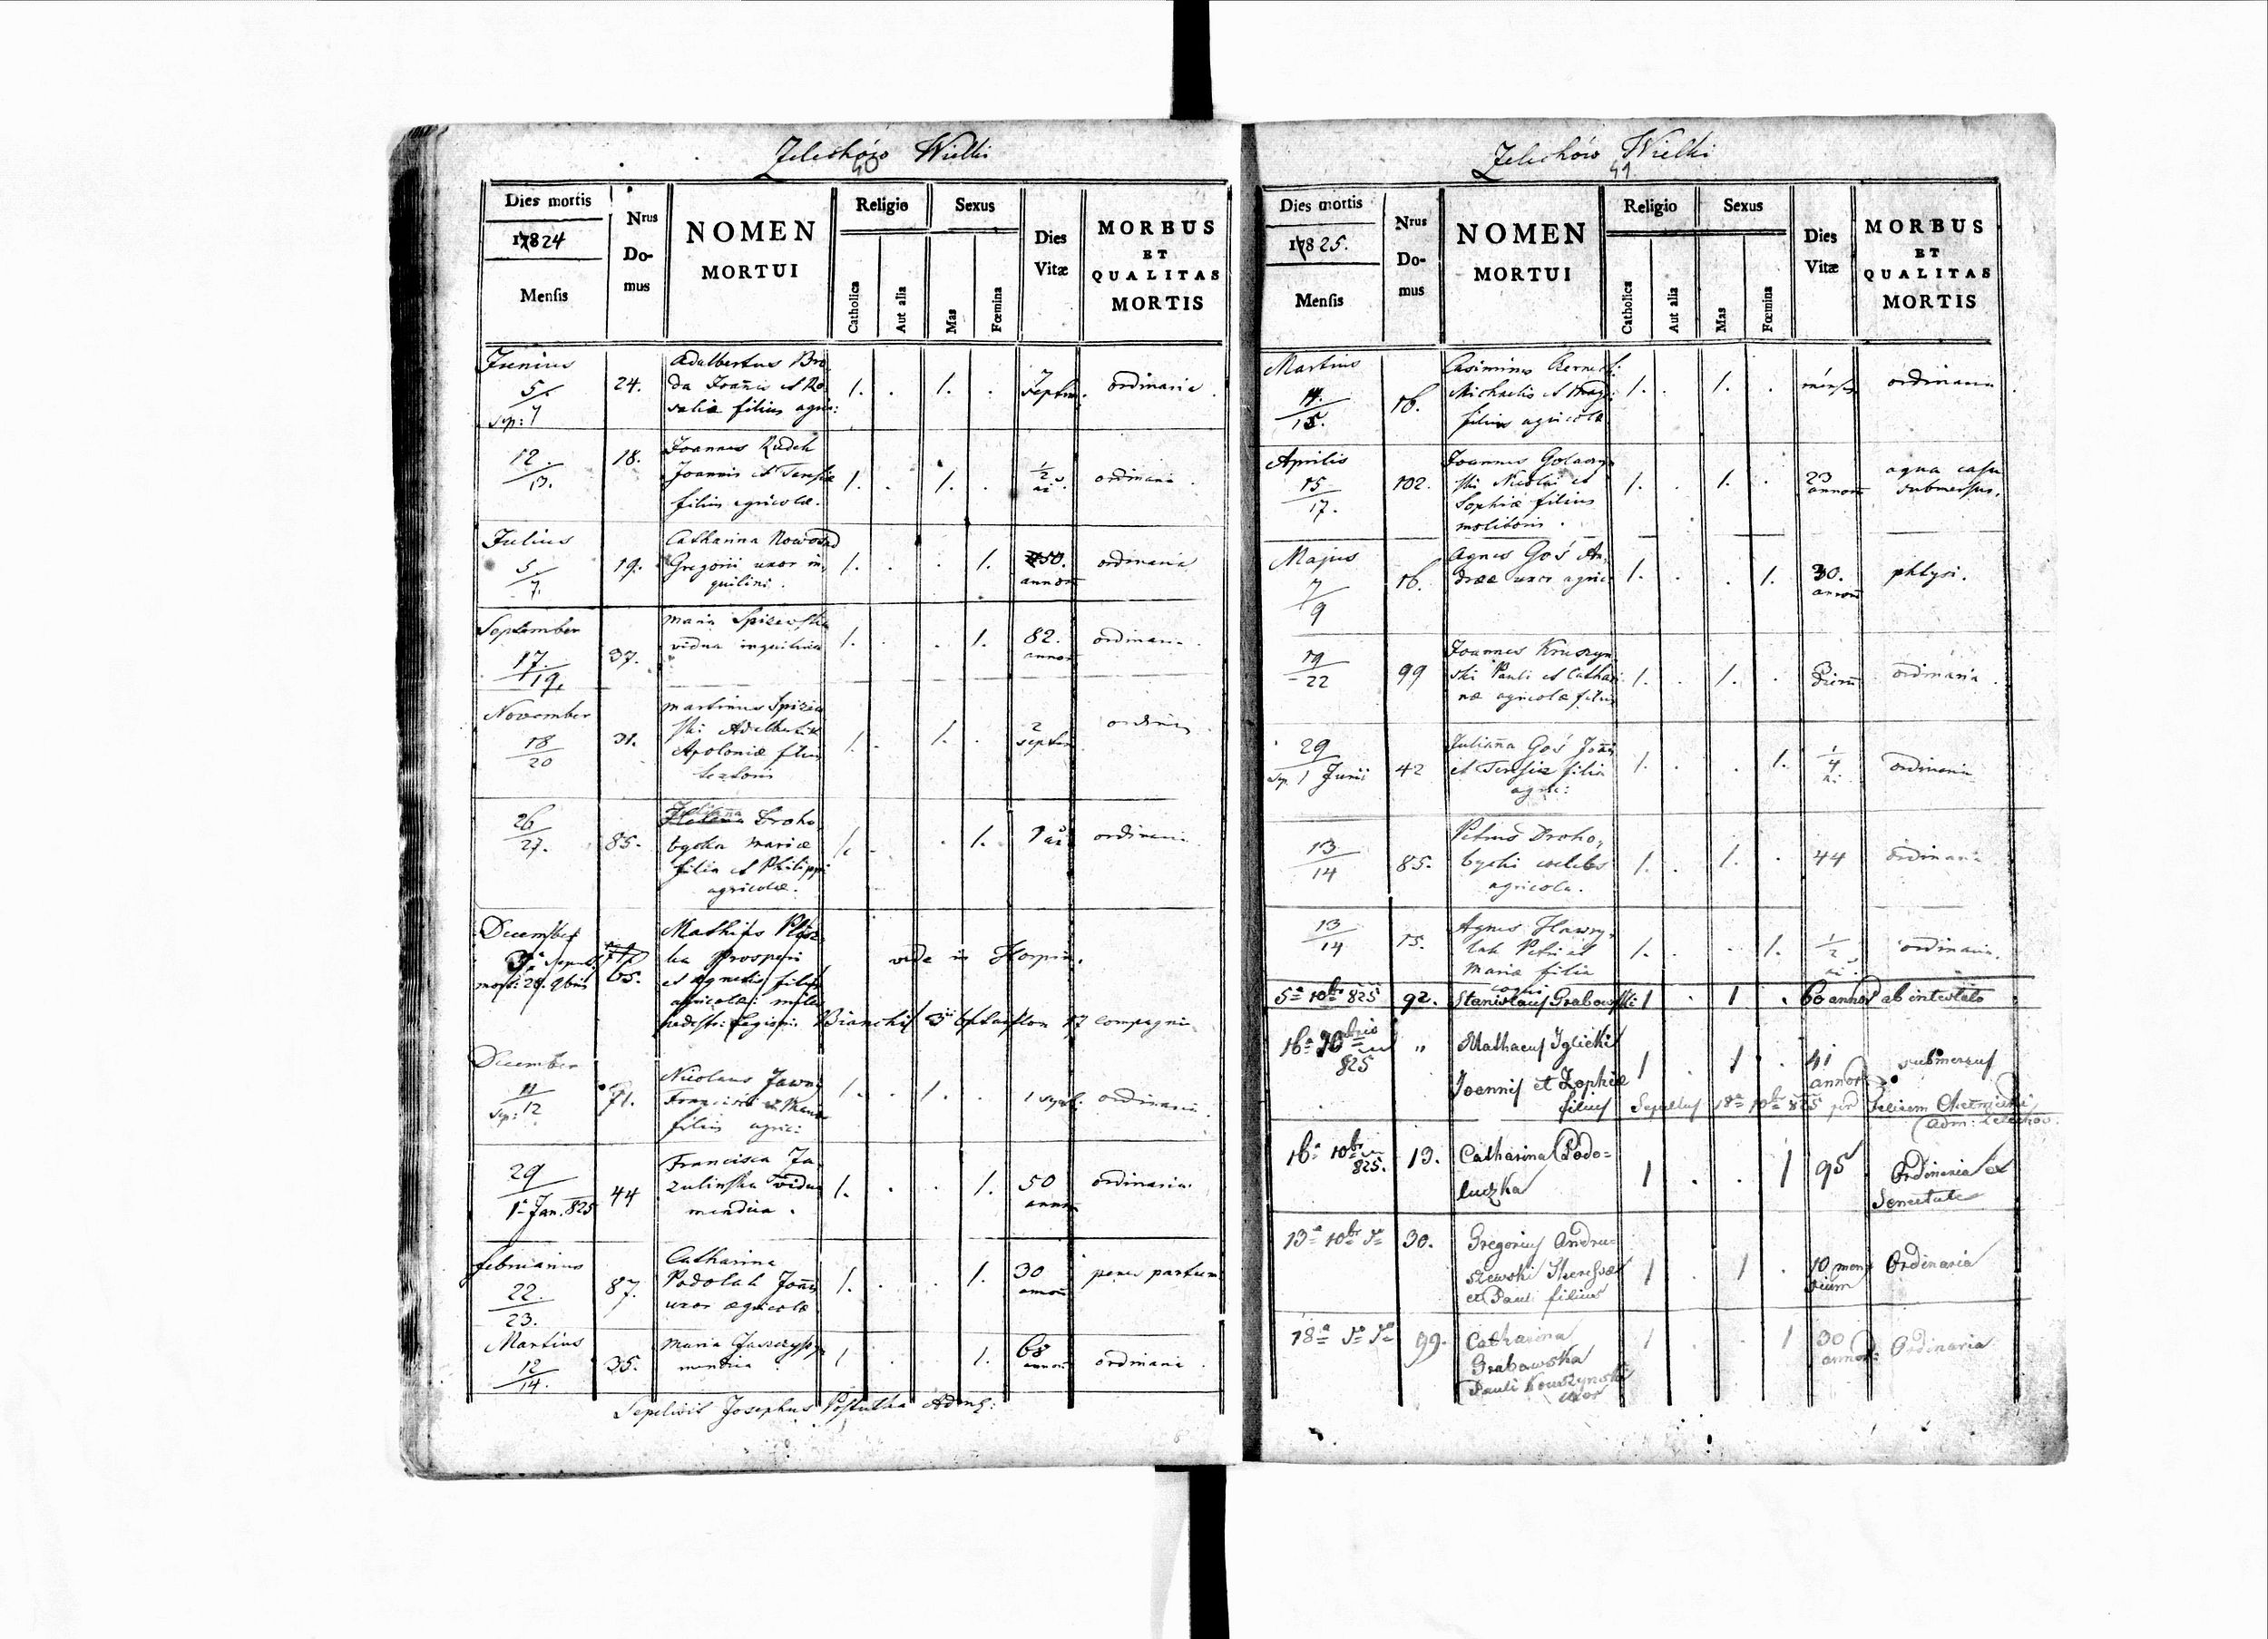 Zelechów Wielki
40
Dies mortis
17824
Mensis
Nrus
Do-
mus
NOMEN
MORTUI
Religio
Catholica
Aut alia
Sexus
Mas
Fœmina
Dies
Vitæ
MORBUS
ET
QUALITAS
MORTIS
Junius
5
sep: 7
24.
Adalbertus Bro
da Joannis et Ro
saliæ filius agric:
1. . 1. .
7
septim.
ordinaria
12
13.
18.
Joannes
Joannis et Teresiæ
filius agricolæ.
1. . 1. .
1/2
ordinaria.
Julius
5
7.
19.
Catharina Nowosad
Gregorii uxor in,
quilini.
1. . . 1.
50.
annorum
ordinaria
September
17.
19.
37.
Maria
vidua inquilina
1. . . 1.
82.
annorum
ordinaria.
November
18
20
31.
Martinus
ski Adalberti et
Apoloniæ filius
textoris
1. . 1. .
2
septim
ordinar
26
27.
85.
Juliañna Droho
bycka Mariæ
filia et Philippi
agricolæ.
1. . . 1.
1
ordinaria
December
3a
mort: 28. 9bris
65.
Mathias
ka Prosperi
et Agnetis filius
agricolæ: miles
pedestr: Legionis Bianchi 3ii Bataillon 17 compagnie
vide in Horpin.
December
11
Sep: 12
71.
Nicolaus
Francisci et Mariæ
filius agric:
1. . 1. .
1
ordinaria.
29
1a Jan. 825
44
Francisca Ja,
zulinska vidua
mendica.
1. . . 1.
50
annor
ordinaria
februarius
22.
23.
87.
Catharina
Podolak Joañis
uxor agricolæ
1. . . 1.
30
annor
penes partum
Martius
12
14.
35.
Maria
mendica
1 . . 1.
68
annor
ordinaria.
Sepelivit Josephus Admr:
Zelechów Wielki
41
Dies mortis
17825.
Mensis
Nrus
Do-
mus
NOMEN
MORTUI
Religio
Catholica
Aut alia
Sexus
Mas
Fœmina
Dies
Vitæ
MORBUS
ET
QUALITAS
MORTIS
Martius
14.
15.
16.
Casimirus
Michaelis et Mag:
filius agricolæ
1. . 1. .
mensis
ordinaria
Aprilis
15
17.
102.
Joannes
ski Nicolai et
Sophiæ filius
molitoris.
1. . 1. .
23
annorum
aqua casu
submersus.
Majus
7
9
16.
Agnes Goś An,
dreæ uxor agric
1. . . 1.
30.
annorum
phtysi.
19
22
99
Joannes Kruszyn
ski Pauli et Cathari
næ agricolæ filius
1. . 1. .
3
dierum
ordinaria.
29
Sep. 1 Junii
42
Juliañna Goś Joañis
et Teresiæ filia
agric:
1. . . 1.
1/4
ordinaria
13
14
85.
Petrus Droho,
bycki coelebs
agricola.
1. . 1. .
44
ordinaria
13
14
15.
Agnes Hawry,
lak Petri et
Mariæ filia
1. . . 1.
1/2
ordinaria.
5a 10br 825
92.
Stanislaus Grabowski
1 . 1 .
60 annor
ab intestato
16a 10bris
825
"
Mathaeus Iglicki
Joannis et Zophiæ
filius
1 . 1 .
41
annor
submersus
Sepultus 18a 10br 825 per
16a 10br
825.
13.
Catharina Podo=
luczka
1 . . 1
95
Ordinaria ex
Senectute
13a 10br
30.
Gregorius Andru=
szewski Theresæ
et Pauli filius
1 . 1 .
10 men
sium
Ordinaria
18a
99.
Catharina
Grabowska
Pauli
uxor
1 . . 1
30
annor:
Ordinaria